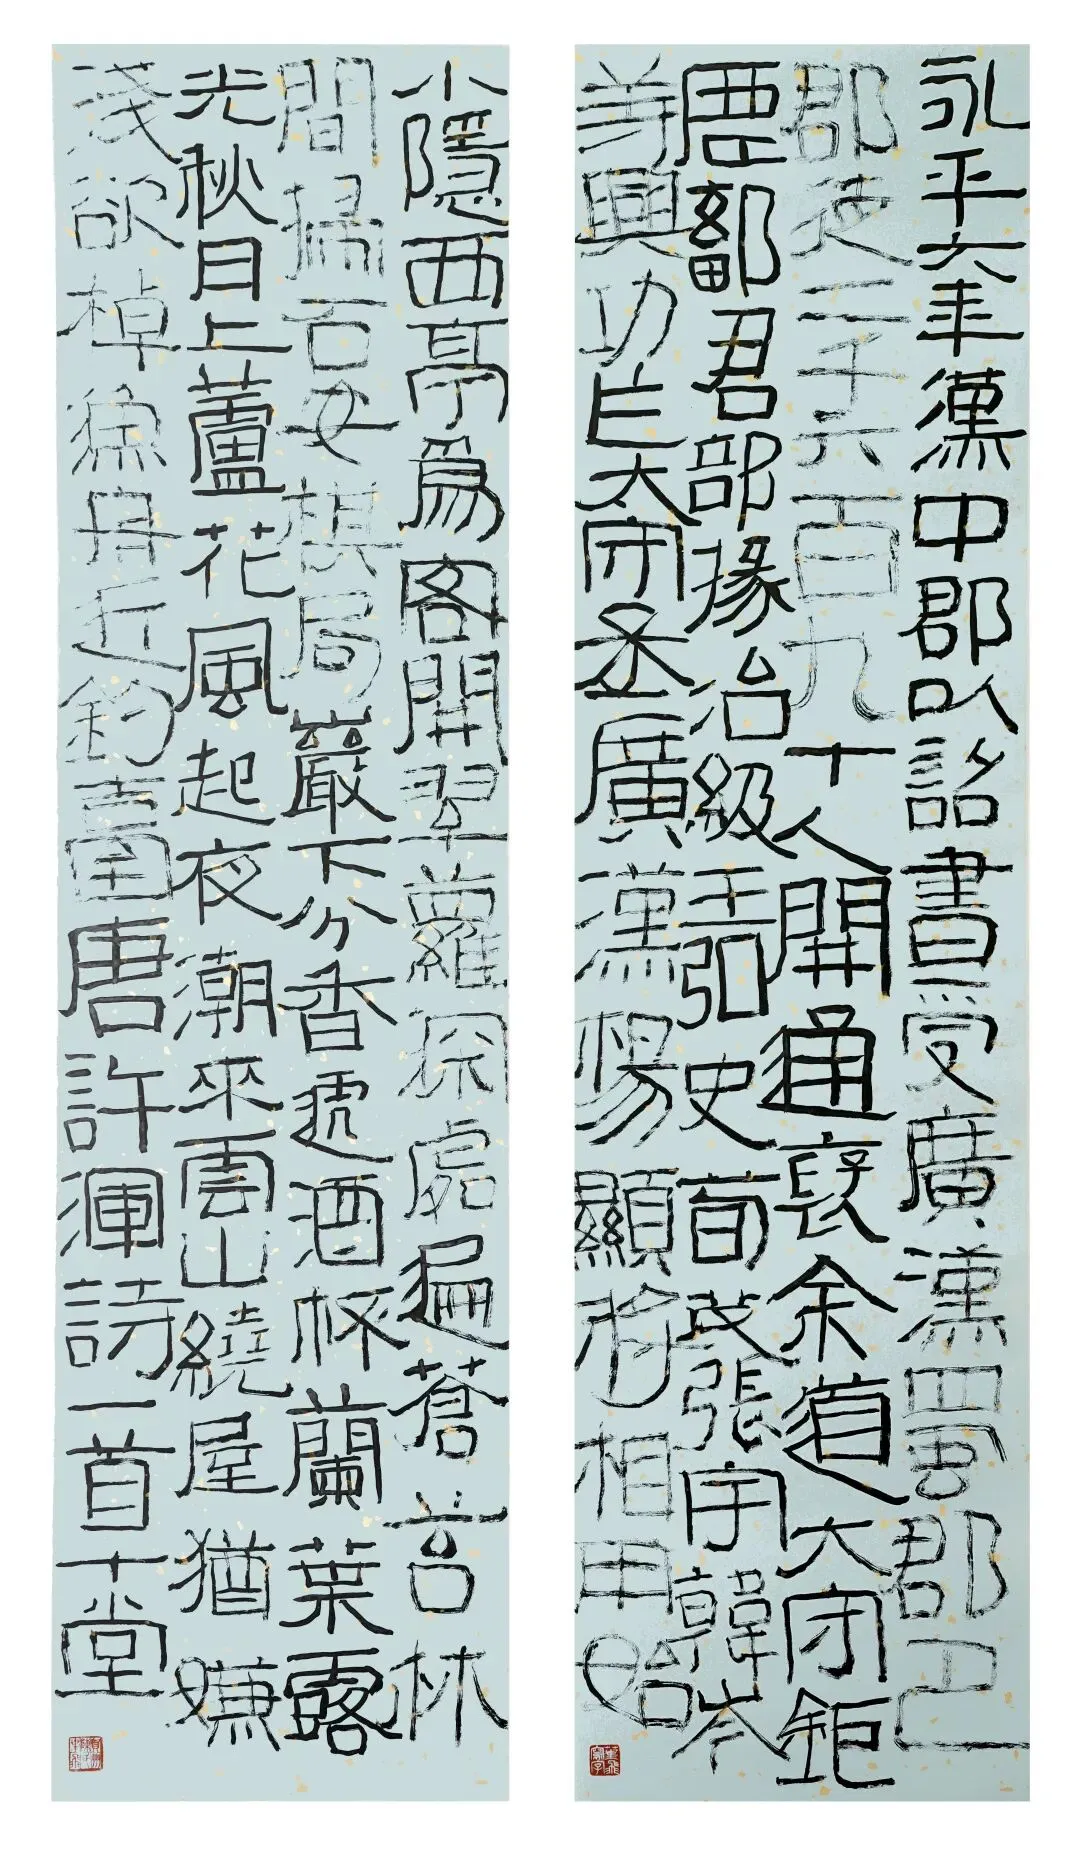 永平六年漢中郡以詔書受廣漢蜀郡巴
郡徒二千六百九十人開通褒余道大守鉅
鹿鄐君部掾治級王弘史荀茂張宇韓岑
等興功作太守丞廣漢楊顯將相用始
小隱西亭爲客開翠蘿深處遍蒼苔林
間掃石安棋局巖下分香遞酒杯蘭葉露
光秋日上蘆花風起夜潮來雲山繞屋猶嫌
淺欲棹漁舟近釣臺唐許渾詩一首十堂